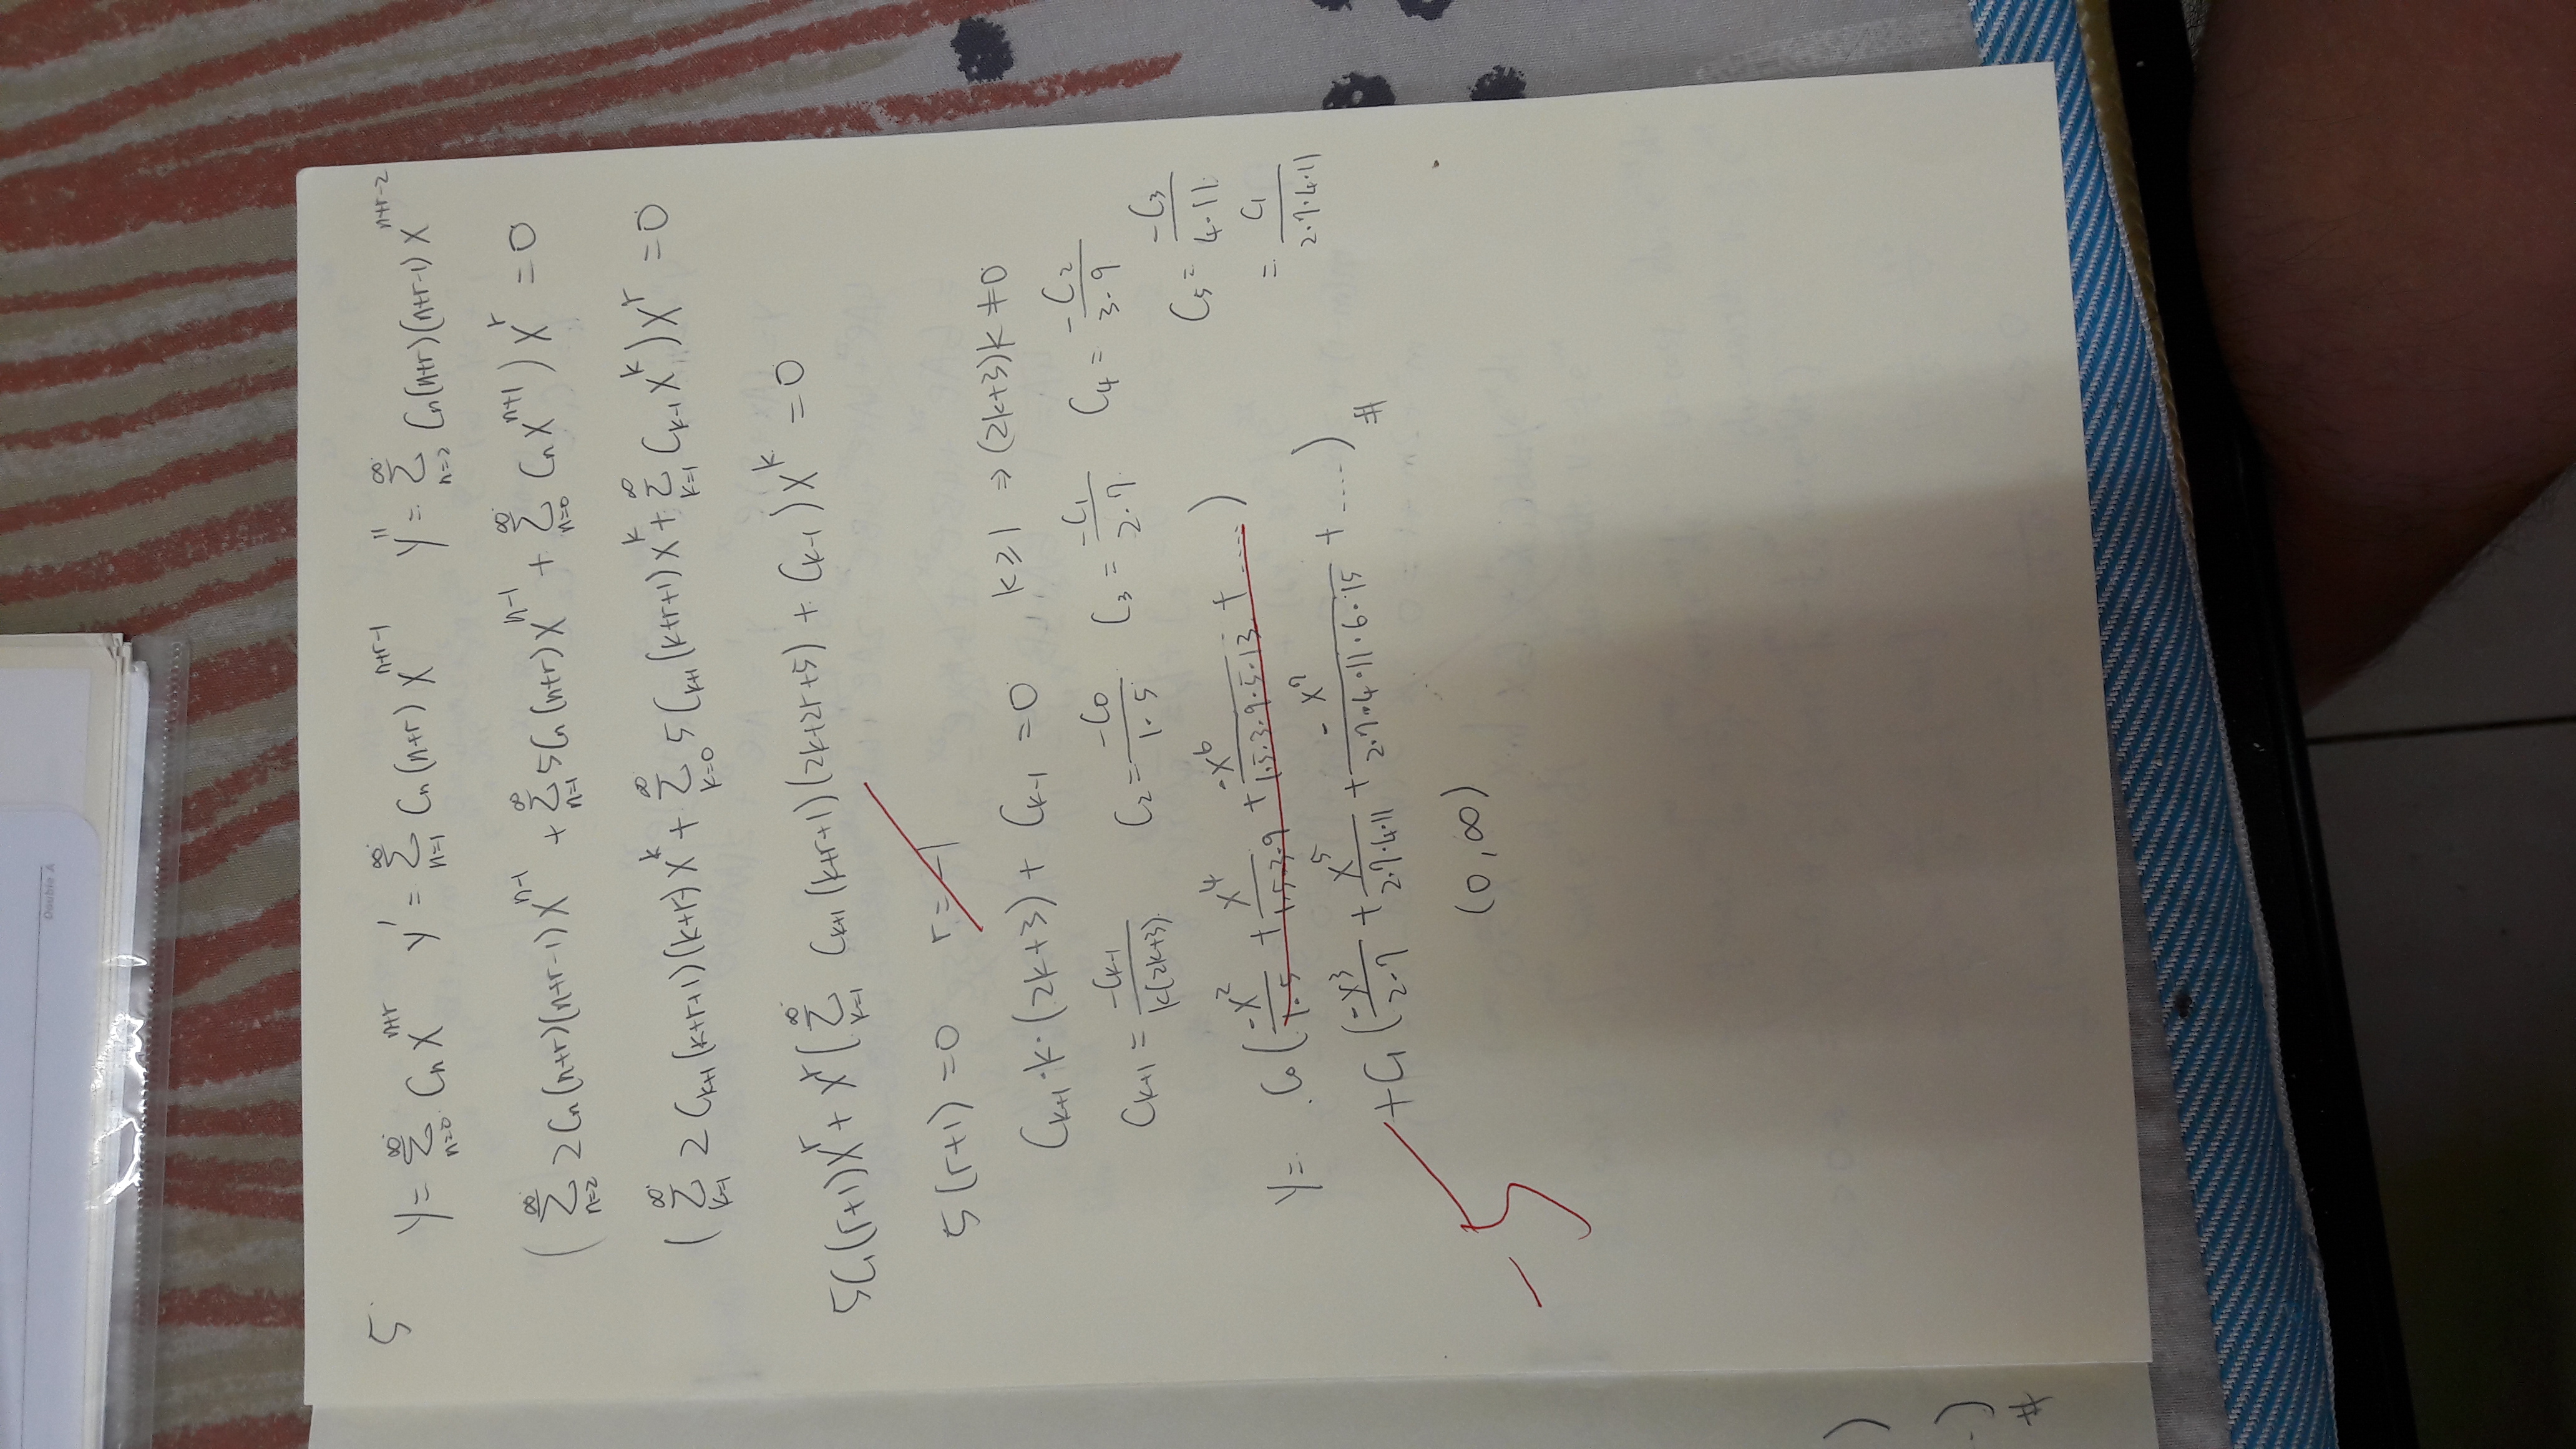 Double A
5.
y = \sum_{n=0}^{\infty} C_n x^{n+r}   y' = \sum_{n=1}^{\infty} C_n (n+r) x^{n+r-1}   y'' = \sum_{n=2}^{\infty} C_n (n+r)(n+r-1) x^{n+r-2}
( \sum_{n=2}^{\infty} 2C_n (n+r)(n+r-1) x^{n-1} + \sum_{n=1}^{\infty} 5C_n (n+r) x^{n-1} + \sum_{n=0}^{\infty} C_n x^{n+1} ) x^r = 0
( \sum_{k=1}^{\infty} 2 C_{k+1} (k+r+1)(k+r) x^k + \sum_{k=0}^{\infty} 5 C_{k+1} (k+r+1) x^k + \sum_{k=1}^{\infty} C_{k-1} x^k ) x^r = 0
5C_1(r+1) x^r + x^r ( \sum_{k=1}^{\infty} C_{k+1} (k+r+1)(2k+2r+5) + C_{k-1} ) x^k = 0
5(r+1) = 0   r = -1
C_{k+1} · k · (2k+3) + C_{k-1} = 0   k ≥ 1 ⇒ (2k+3)k ≠ 0
C_{k+1} = \frac{-C_{k-1}}{k(2k+3)}   C_2 = \frac{-C_0}{1·5}   C_3 = \frac{-C_1}{2·7}   C_4 = \frac{-C_2}{3·9}
C_5 = \frac{-C_3}{4·11}
= \frac{C_1}{2·7·4·11}
y = C_0 ( \frac{-x^2}{1·5} + \frac{x^4}{1·5·3·9} + \frac{-x^6}{1·5·3·9·5·13} + .... )
+ C_1 ( \frac{-x^3}{2·7} + \frac{x^5}{2·7·4·11} + \frac{-x^7}{2·7·4·11·6·15} + .... ) #
-5
(0, ∞)
)
-)
#